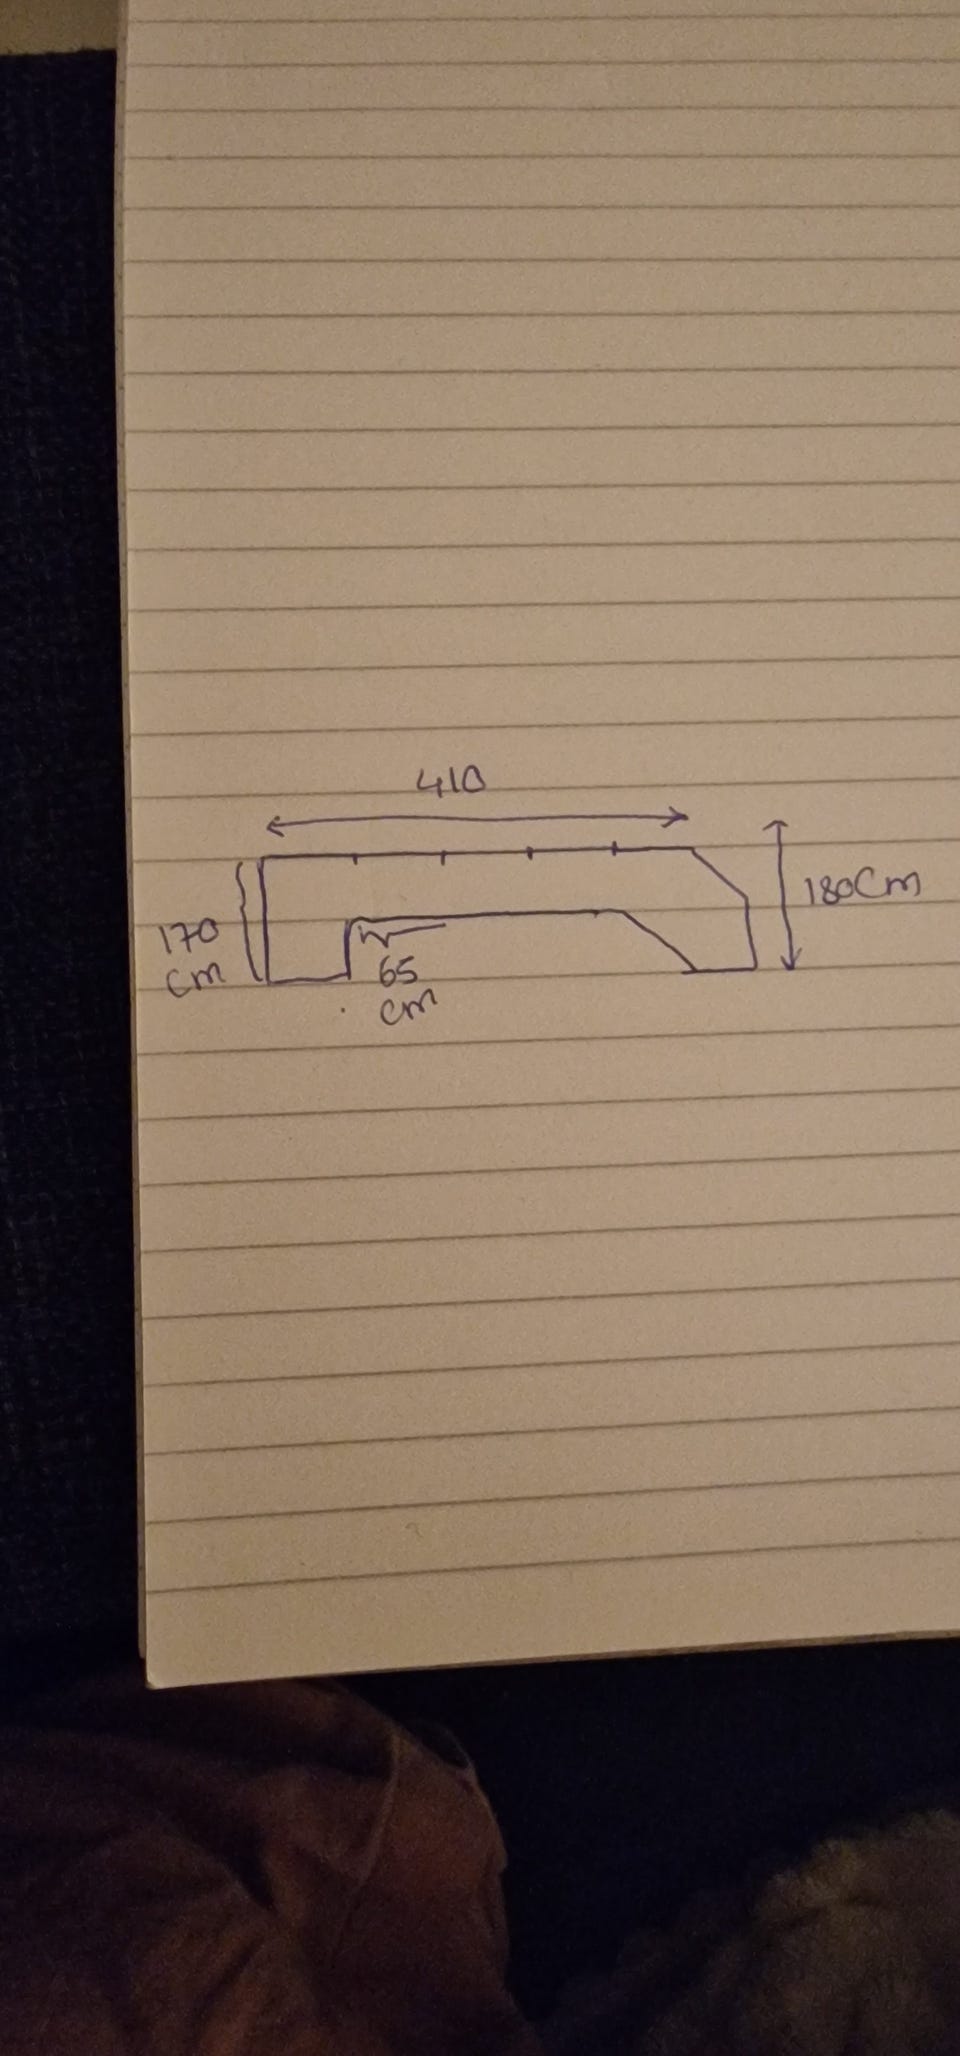 410
180cm
170
cm
65
cm